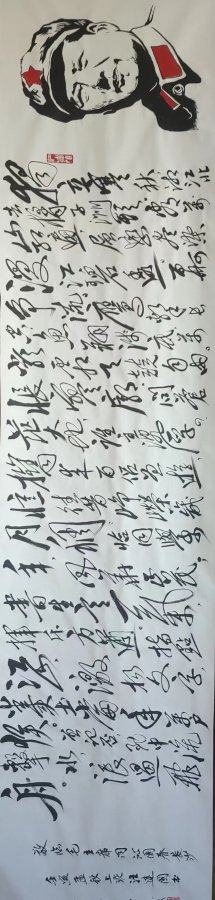 独立寒秋湘江北
去橘子洲头看万
山红遍层林尽染
漫江碧透百舸
争流鹰击长空
鱼翔浅底万类
霜天竞自由
怅寥廓问苍
茫大地谁主沉浮
携来百侣曾游
忆往昔峥嵘岁
月稠恰同学少
年风华正茂
书生意气
挥斥方遒指点
江山激扬文字
粪土当年万户
侯曾记否到中流
击水浪遏飞
舟
敬临毛主席词沁园春长沙